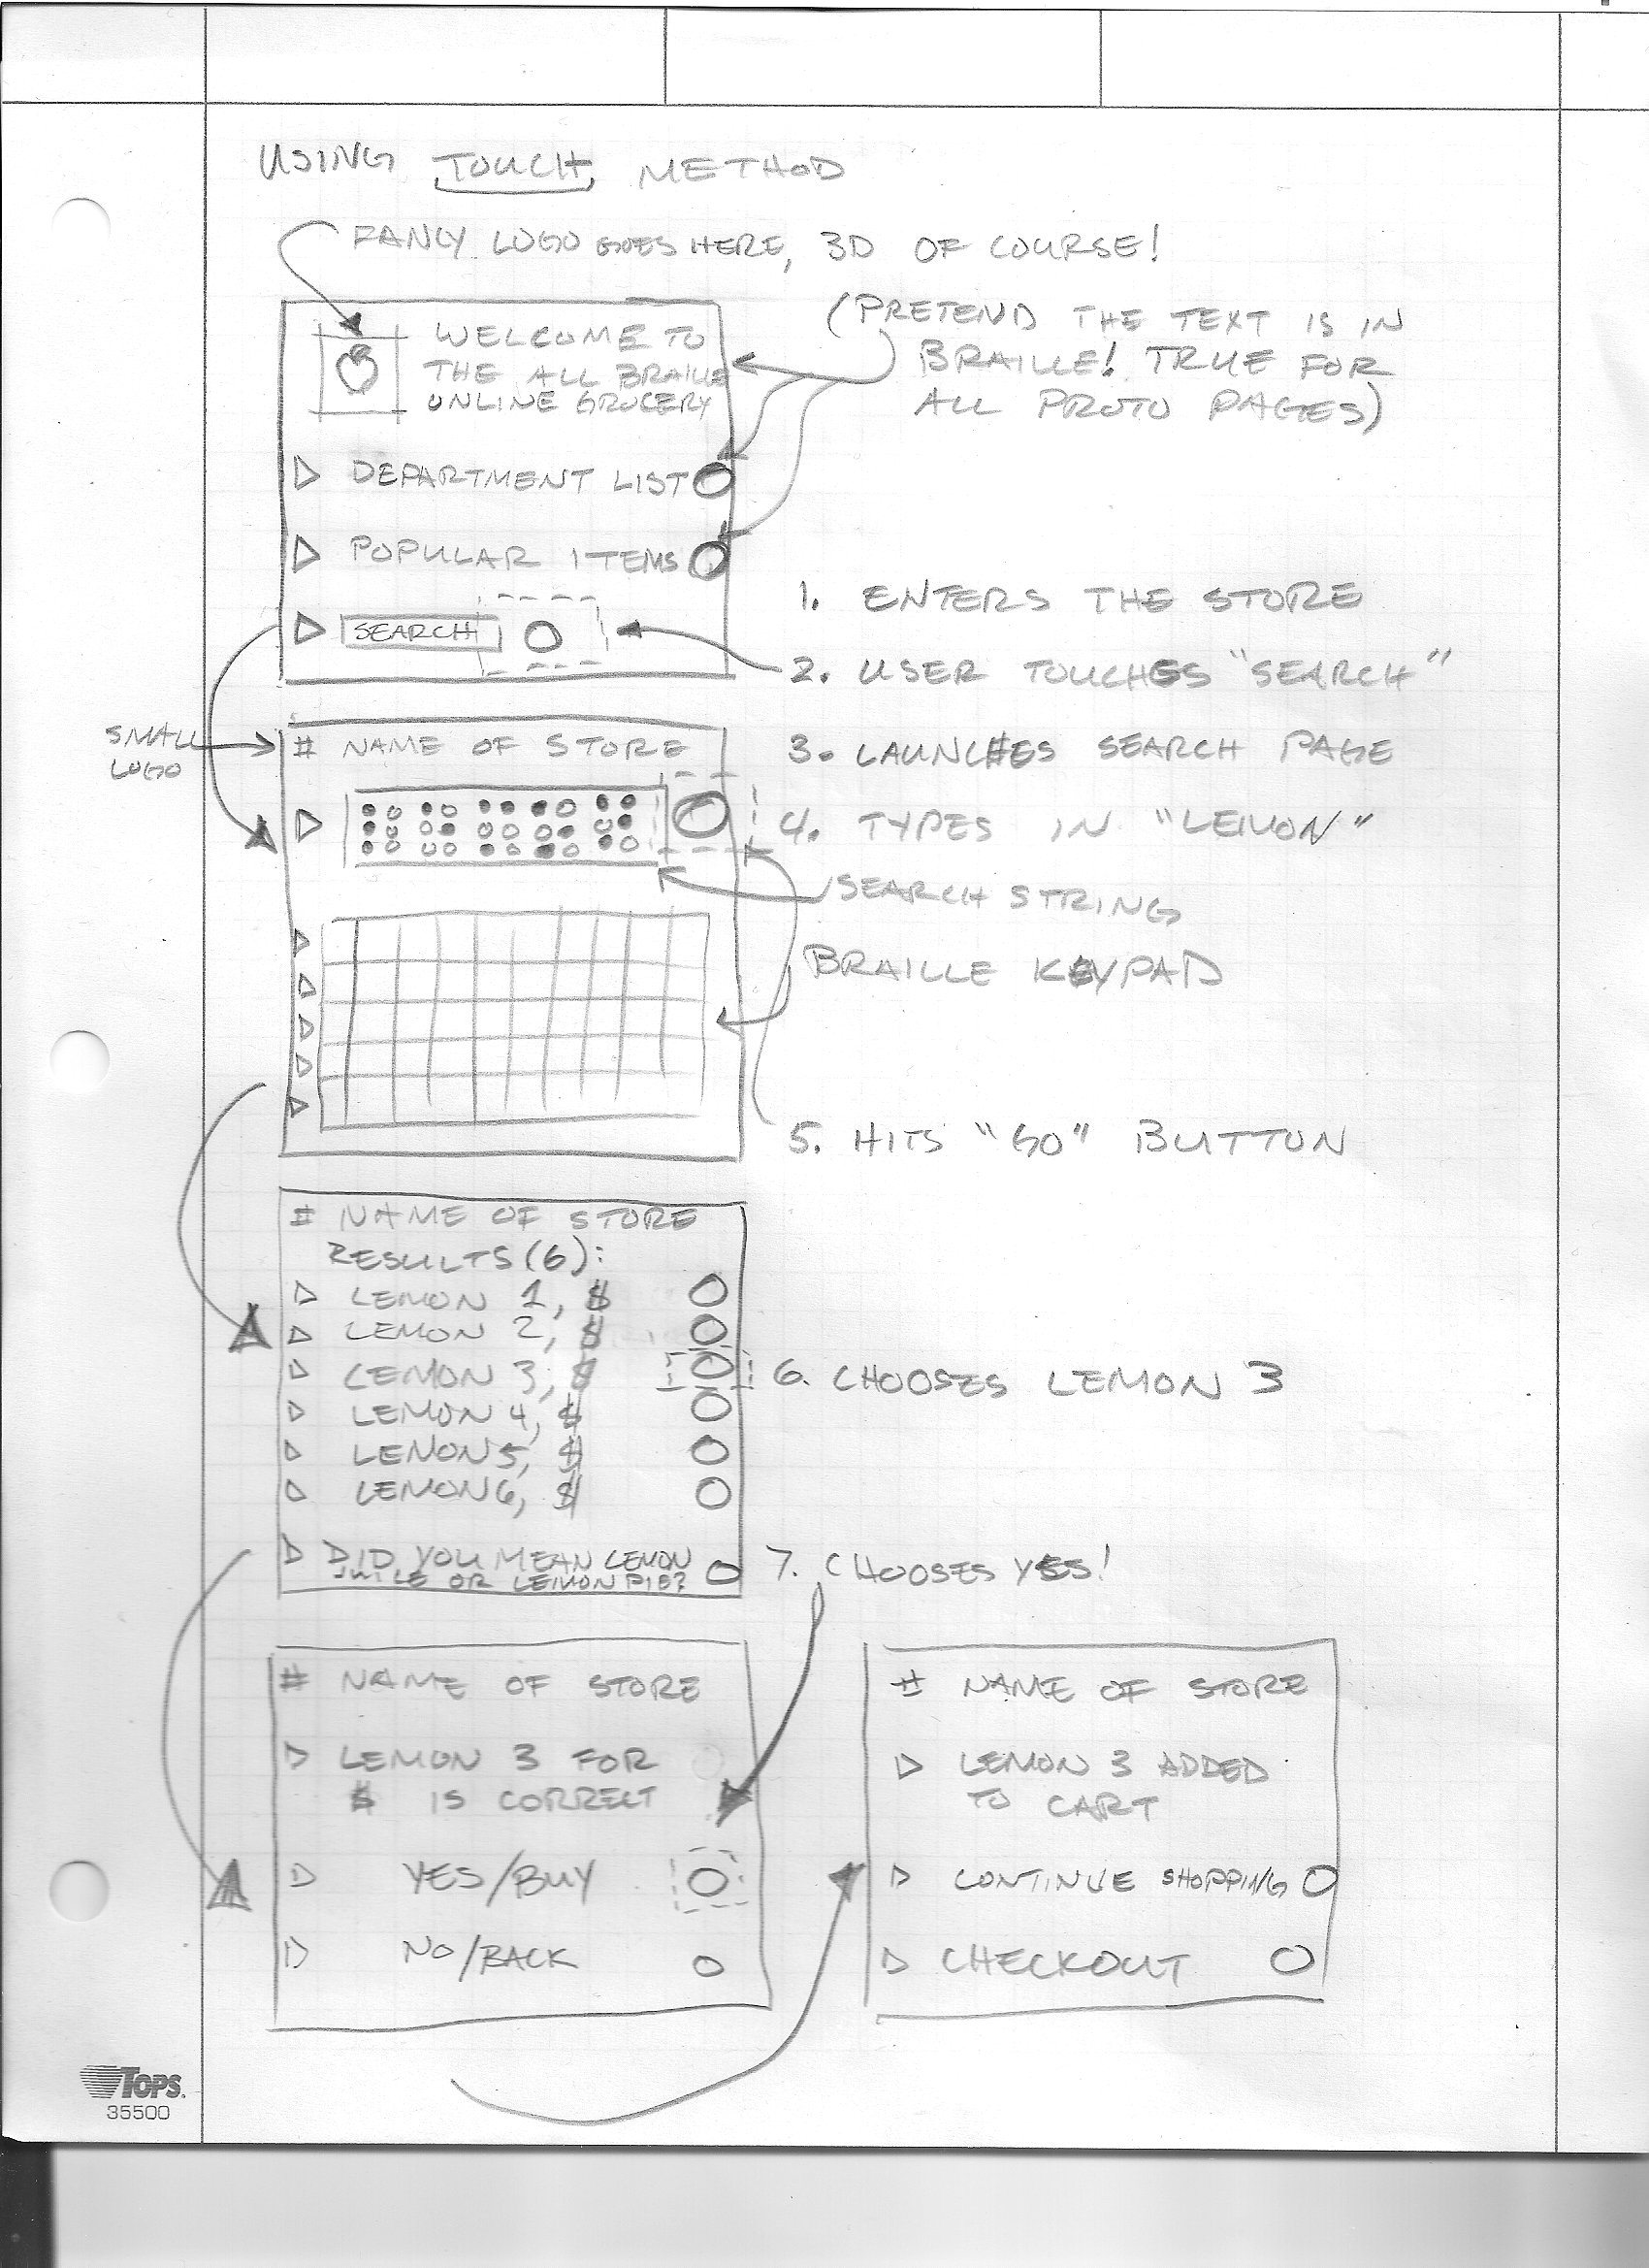 USING TOUCH METHOD
FANCY LOGO GOES HERE, 3D OF COURSE!
(PRETEND THE TEXT IS IN
BRAILLE! TRUE FOR
ALL PROTO PAGES)
WELCOME TO
THE ALL BRAILLE
ONLINE GROCERY
DEPARTMENT LIST
POPULAR ITEMS
SEARCH
1. ENTERS THE STORE
2. USER TOUCHES "SEARCH"
SMALL
LOGO
# NAME OF STORE
3. LAUNCHES SEARCH PAGE
4. TYPES IN "LEMON"
SEARCH STRING
BRAILLE KEYPAD
5. HITS "GO" BUTTON
# NAME OF STORE
RESULTS (6):
LEMON 1, $
LEMON 2, $
LEMON 3, $
LEMON 4, $
LEMON 5, $
LEMON 6, $
DID YOU MEAN LEMON
JUICE OR LEMON PIE?
6. CHOOSES LEMON 3
7. CHOOSES YES!
# NAME OF STORE
LEMON 3 FOR
$ IS CORRECT
YES/BUY
NO/BACK
# NAME OF STORE
LEMON 3 ADDED
TO CART
CONTINUE SHOPPING
CHECKOUT
TOPS
35500